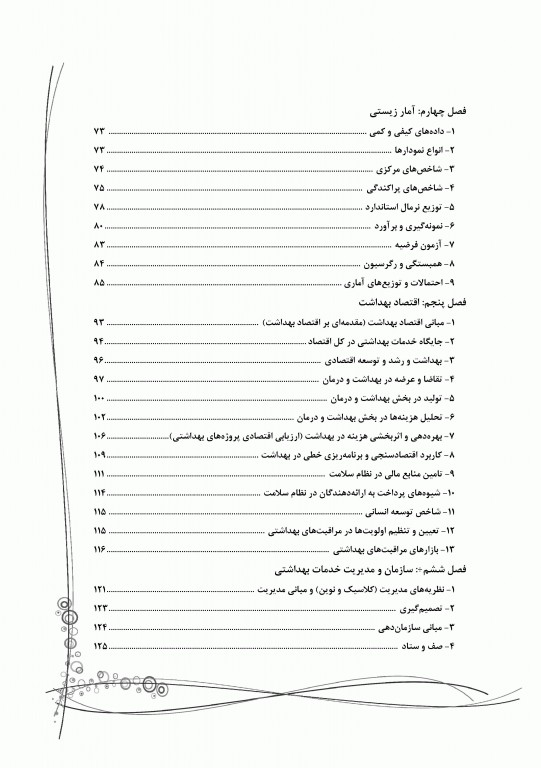 فصل چهارم: آمار زیستی
۱- داده‌های کیفی و کمی ........ ۷۳
۲- انواع نمودارها ........ ۷۳
۳- شاخص‌های مرکزی ........ ۷۴
۴- شاخص‌های پراکندگی ........ ۷۵
۵- توزیع نرمال استاندارد ........ ۷۸
۶- نمونه‌گیری و برآورد ........ ۸۰
۷- آزمون فرضیه ........ ۸۳
۸- همبستگی و رگرسیون ........ ۸۴
۹- احتمالات و توزیع‌های آماری ........ ۸۵
فصل پنجم: اقتصاد بهداشت
۱- مبانی اقتصاد بهداشت (مقدمه‌ای بر اقتصاد بهداشت) ........ ۹۳
۲- جایگاه خدمات بهداشتی در کل اقتصاد ........ ۹۴
۳- بهداشت و رشد و توسعه اقتصادی ........ ۹۶
۴- تقاضا و عرضه در بهداشت و درمان ........ ۹۷
۵- تولید در بخش بهداشت و درمان ........ ۱۰۰
۶- تحلیل هزینه‌ها در بخش بهداشت و درمان ........ ۱۰۲
۷- بهره‌دهی و اثربخشی هزینه در بهداشت (ارزیابی اقتصادی پروژه‌های بهداشتی) ........ ۱۰۶
۸- کاربرد اقتصادسنجی و برنامه‌ریزی خطی در بهداشت ........ ۱۰۹
۹- تامین منابع مالی در نظام سلامت ........ ۱۱۱
۱۰- شیوه‌های پرداخت به ارائه‌دهندگان در نظام سلامت ........ ۱۱۴
۱۱- شاخص توسعه انسانی ........ ۱۱۵
۱۲- تعیین و تنظیم اولویت‌ها در مراقبت‌های بهداشتی ........ ۱۱۵
۱۳- بازارهای مراقبت‌های بهداشتی ........ ۱۱۶
فصل ششم÷: سازمان و مدیریت خدمات بهداشتی
۱- نظریه‌های مدیریت (کلاسیک و نوین) و مبانی مدیریت ........ ۱۲۱
۲- تصمیم‌گیری ........ ۱۲۳
۳- مبانی سازمان‌دهی ........ ۱۲۴
۴- صف و ستاد ........ ۱۲۵